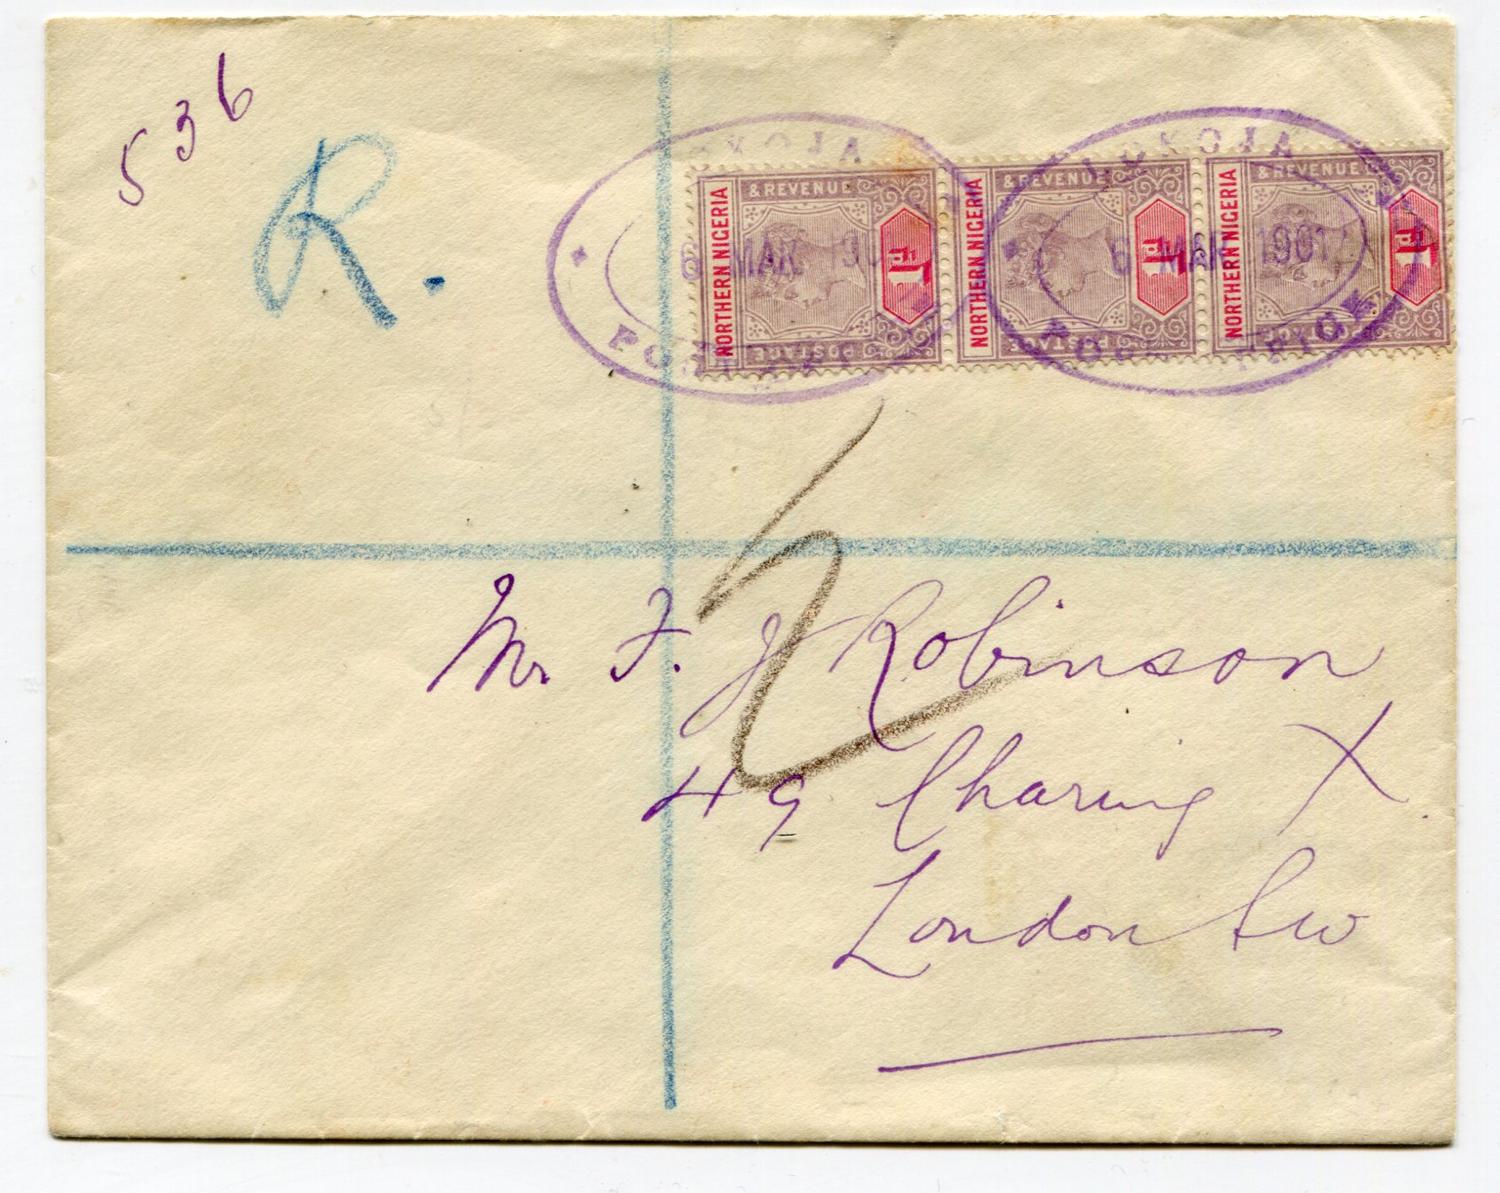 536
R.
LOKOJA
6 MAR 190
POST OFFICE
LOKOJA
6 MAR 1901
POST OFFICE
NORTHERN NIGERIA
& REVENUE
1d
POSTAGE
NORTHERN NIGERIA
& REVENUE
1d
POSTAGE
NORTHERN NIGERIA
& REVENUE
1d
POSTAGE
2
Mr. F. J Robinson
49 Charing X
London SW